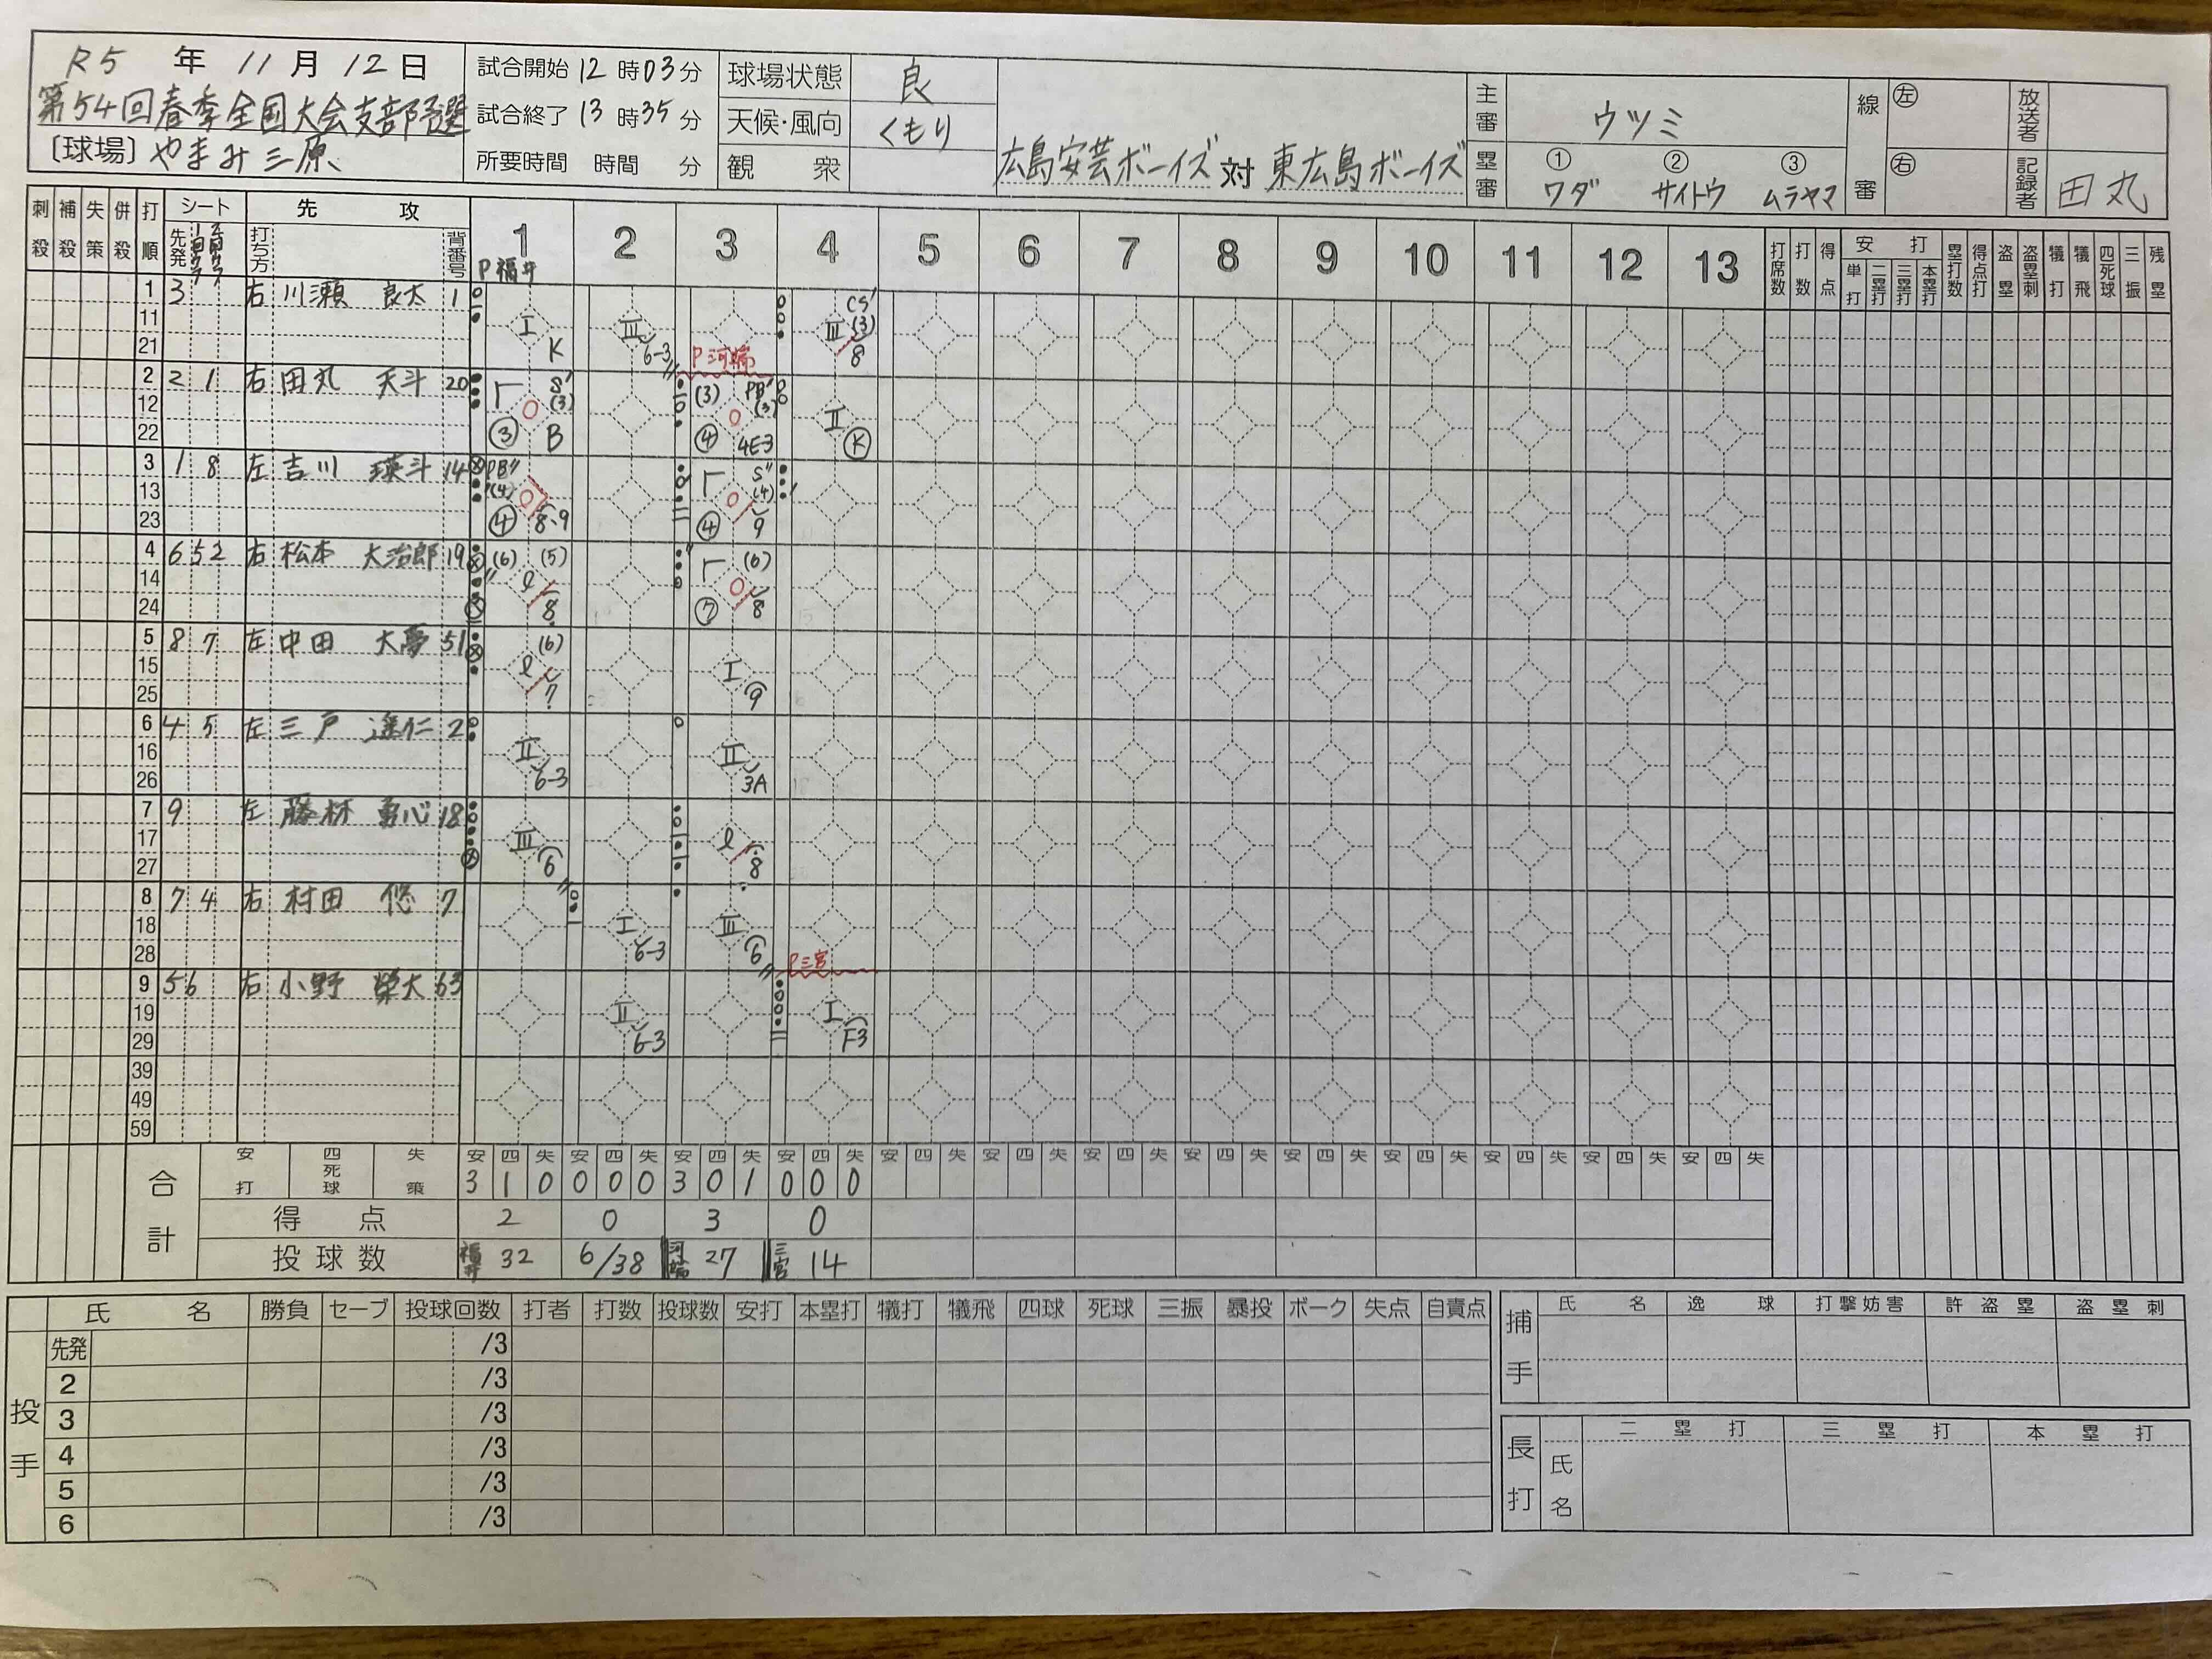 R5 年 11 月 12 日
第54回春季全国大会支部予選
〔球場〕やまみ三原
試合開始 12 時 03 分
試合終了 13 時 35 分
所要時間 時間 分
球場状態 良
天候・風向 くもり
観衆
広島安芸ボーイズ 対 東広島ボーイズ
主審 ウツミ
塁審 ① ワダ ② サイトウ ③ ムラヤマ
線審 左 右
放送者
記録者 田丸
刺殺 補殺 失策 併殺 打順 シート 先発 打ち方 先攻 背番号 1 2 3 4 5 6 7 8 9 10 11 12 13 打席数 打数 得点 安打 単打 二塁打 三塁打 本塁打 塁打数 得点打 盗塁 盗塁刺 犠打 犠飛 四死球 三振 残塁
P福井
1 11 21 3 右 川瀬 良太 1 I K III 6-3 III CS' (3) 8
P河端
2 12 22 2 1 右 田丸 天斗 20 S' (3) ③ B (3) PB' (3) ④ 4E-3 II K
3 13 23 1 8 左 吉川 瑛斗 14 PB" (4) ④ 8.9 S" (4) ④ 9
4 14 24 6 5 2 右 松本 大治郎 19 (6) (5) l 8 (6) ⑦ 8
5 15 25 8 7 左 中田 大夢 51 (6) l 7 I 9
6 16 26 4 5 左 三戸 2 II 6-3 II 3A
7 17 27 9 左 藤林 勇心 18 III 6 l 8
8 18 28 7 4 右 村田 悠 7 I 6-3 III 6
P三宮
9 19 29 5 6 右 小野 榮大 63 II 6-3 I F3
39
49
59
合計 安打 四死球 失策 安 四 失 安 四 失 安 四 失 安 四 失 安 四 失 安 四 失 安 四 失 安 四 失 安 四 失 安 四 失 安 四 失 安 四 失 安 四 失
3 1 0 0 0 0 3 0 1 0 0 0
得点 2 0 3 0
投球数 福井 32 6/38 河端 27 三宮 14
投手 氏名 勝負 セーブ 投球回数 打者 打数 投球数 安打 本塁打 犠打 犠飛 四球 死球 三振 暴投 ボーク 失点 自責点
先発 /3
2 /3
3 /3
4 /3
5 /3
6 /3
捕手 氏名 逸球 打撃妨害 許盗塁 盗塁刺
長打 氏名 二塁打 三塁打 本塁打